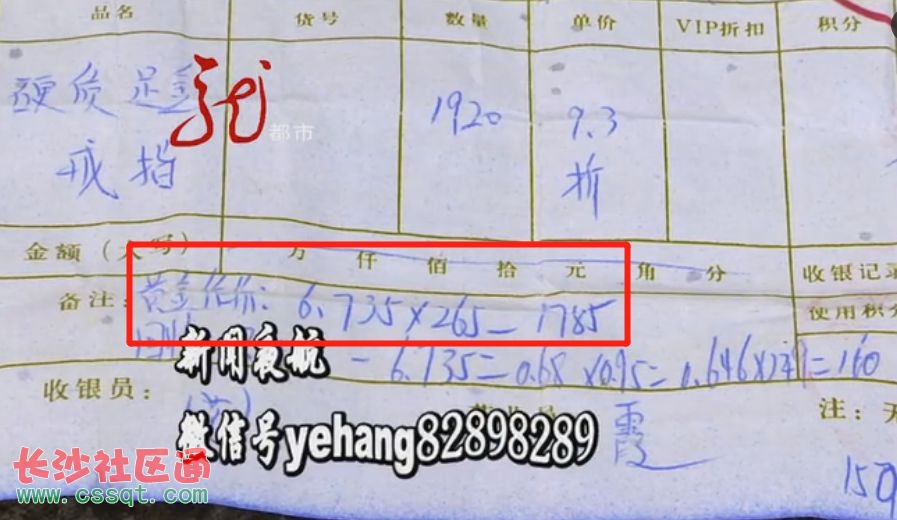 品名 货号 数量 单价 VIP折扣 积分
硬质足金 1920 9.3
戒指 折
龙
都市
金额（大写） 万 仟 佰 拾 元 角 分 收银记录
备注：黄金作价：6.735×265=1785 使用积分
-6.135=0.68×0.95=0.646×249=160
新闻夜航
收银员： 霞 注：
微信号yehang82898289
长沙社区通
www.cssqt.com